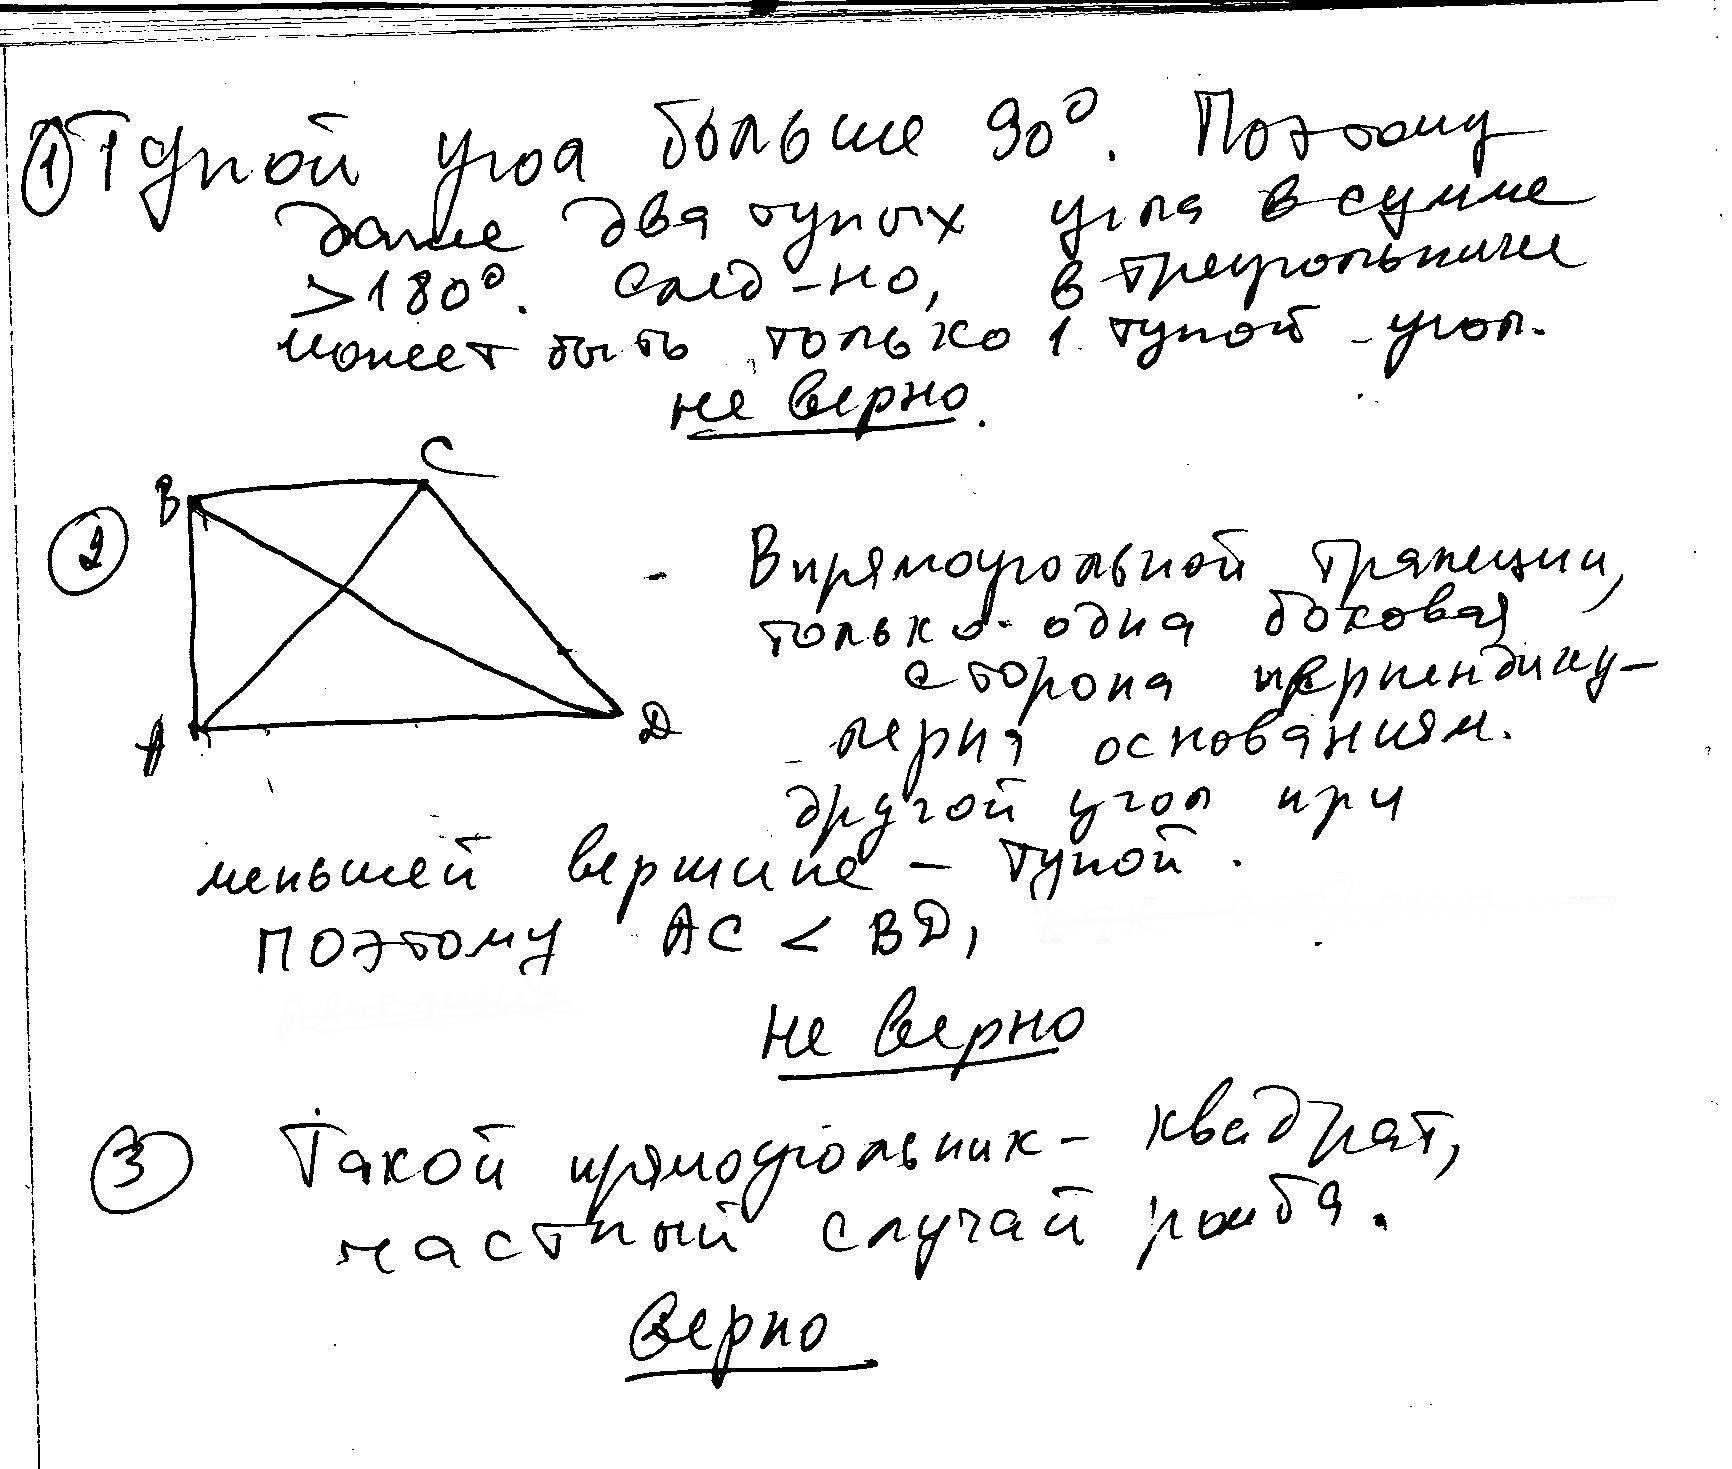 ① Тупой угол больше 90°. Поэтому
даже два тупых угла в сумме
>180°. След-но, в треугольнике
может быть только 1 тупой угол.
не верно.
B C
② В прямоугольной трапеции,
только одна боковая
сторона перпендику-
A D
лярна основаниям.
другой угол при
меньшей вершине – тупой.
Поэтому AC < BD,
не верно
③ Такой прямоугольник – квадрат,
частный случай ромба.
верно